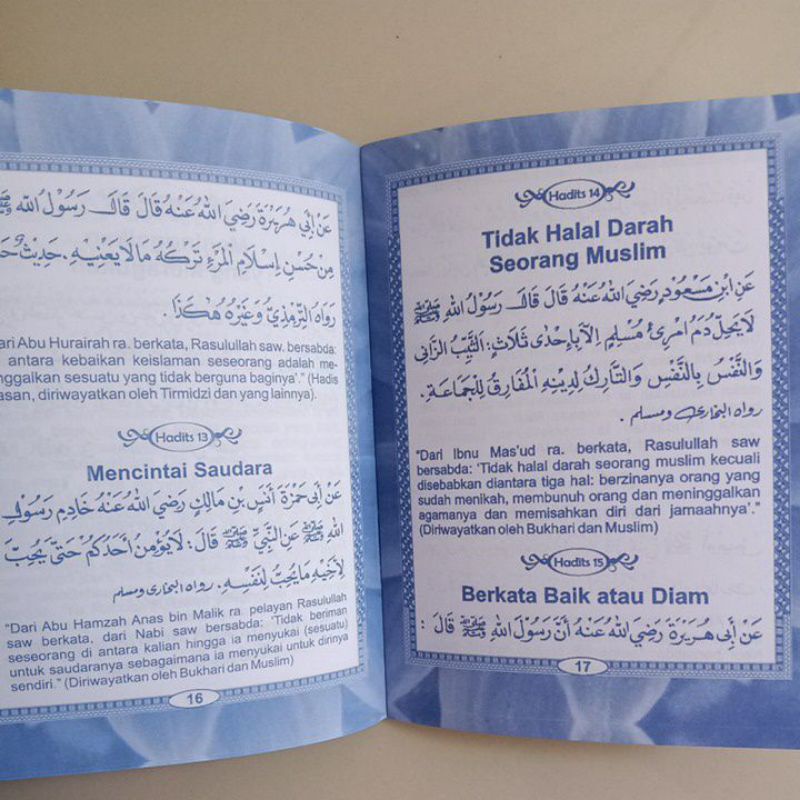 عَنْ أَبِي هُرَيْرَةَ رَضِيَ اللهُ عَنْهُ قَالَ قَالَ رَسُوْلُ اللهِ ﷺ
مِنْ حُسْنِ إِسْلَامِ الْمَرْءِ تَرْكُهُ مَا لَا يَعْنِيْهِ. حَدِيْثٌ
رَوَاهُ التِّرْمِذِيُّ وَغَيْرُهُ هٰكَذَا.
ari Abu Hurairah ra. berkata, Rasulullah saw. bersabda:
antara kebaikan keislaman seseorang adalah me-
nggalkan sesuatu yang tidak berguna baginya'." (Hadis
asan, diriwayatkan oleh Tirmidzi dan yang lainnya).
Hadits 13
Mencintai Saudara
عَنْ أَبِي حَمْزَةَ أَنَسِ بْنِ مَالِكٍ رَضِيَ اللهُ عَنْهُ خَادِمِ رَسُوْلِ
اللهِ ﷺ عَنِ النَّبِيِّ ﷺ قَالَ: لَا يُؤْمِنُ أَحَدُكُمْ حَتَّى يُحِبَّ
لِأَخِيْهِ مَا يُحِبُّ لِنَفْسِهِ. رواه البخاري ومسلم
"Dari Abu Hamzah Anas bin Malik ra. pelayan Rasulullah
saw berkata, dari Nabi saw bersabda: 'Tidak beriman
seseorang di antara kalian hingga ia menyukai (sesuatu)
untuk saudaranya sebagaimana ia menyukai untuk dirinya
sendiri." (Diriwayatkan oleh Bukhari dan Muslim)
16
Hadits 14
Tidak Halal Darah
Seorang Muslim
عَنِ ابْنِ مَسْعُوْدٍ رَضِيَ اللهُ عَنْهُ قَالَ قَالَ رَسُوْلُ اللهِ ﷺ
لَا يَحِلُّ دَمُ امْرِئٍ مُسْلِمٍ إِلَّا بِإِحْدَى ثَلَاثٍ: الثَّيِّبُ الزَّانِي
وَالنَّفْسُ بِالنَّفْسِ وَالتَّارِكُ لِدِيْنِهِ الْمُفَارِقُ لِلْجَمَاعَةِ.
رواه البخاري ومسلم.
"Dari Ibnu Mas'ud ra. berkata, Rasulullah saw
bersabda: 'Tidak halal darah seorang muslim kecuali
disebabkan diantara tiga hal: berzinanya orang yang
sudah menikah, membunuh orang dan meninggalkan
agamanya dan memisahkan diri dari jamaahnya'."
(Diriwayatkan oleh Bukhari dan Muslim)
Hadits 15
Berkata Baik atau Diam
عَنْ أَبِي هُرَيْرَةَ رَضِيَ اللهُ عَنْهُ أَنَّ رَسُوْلَ اللهِ ﷺ قَالَ :
17